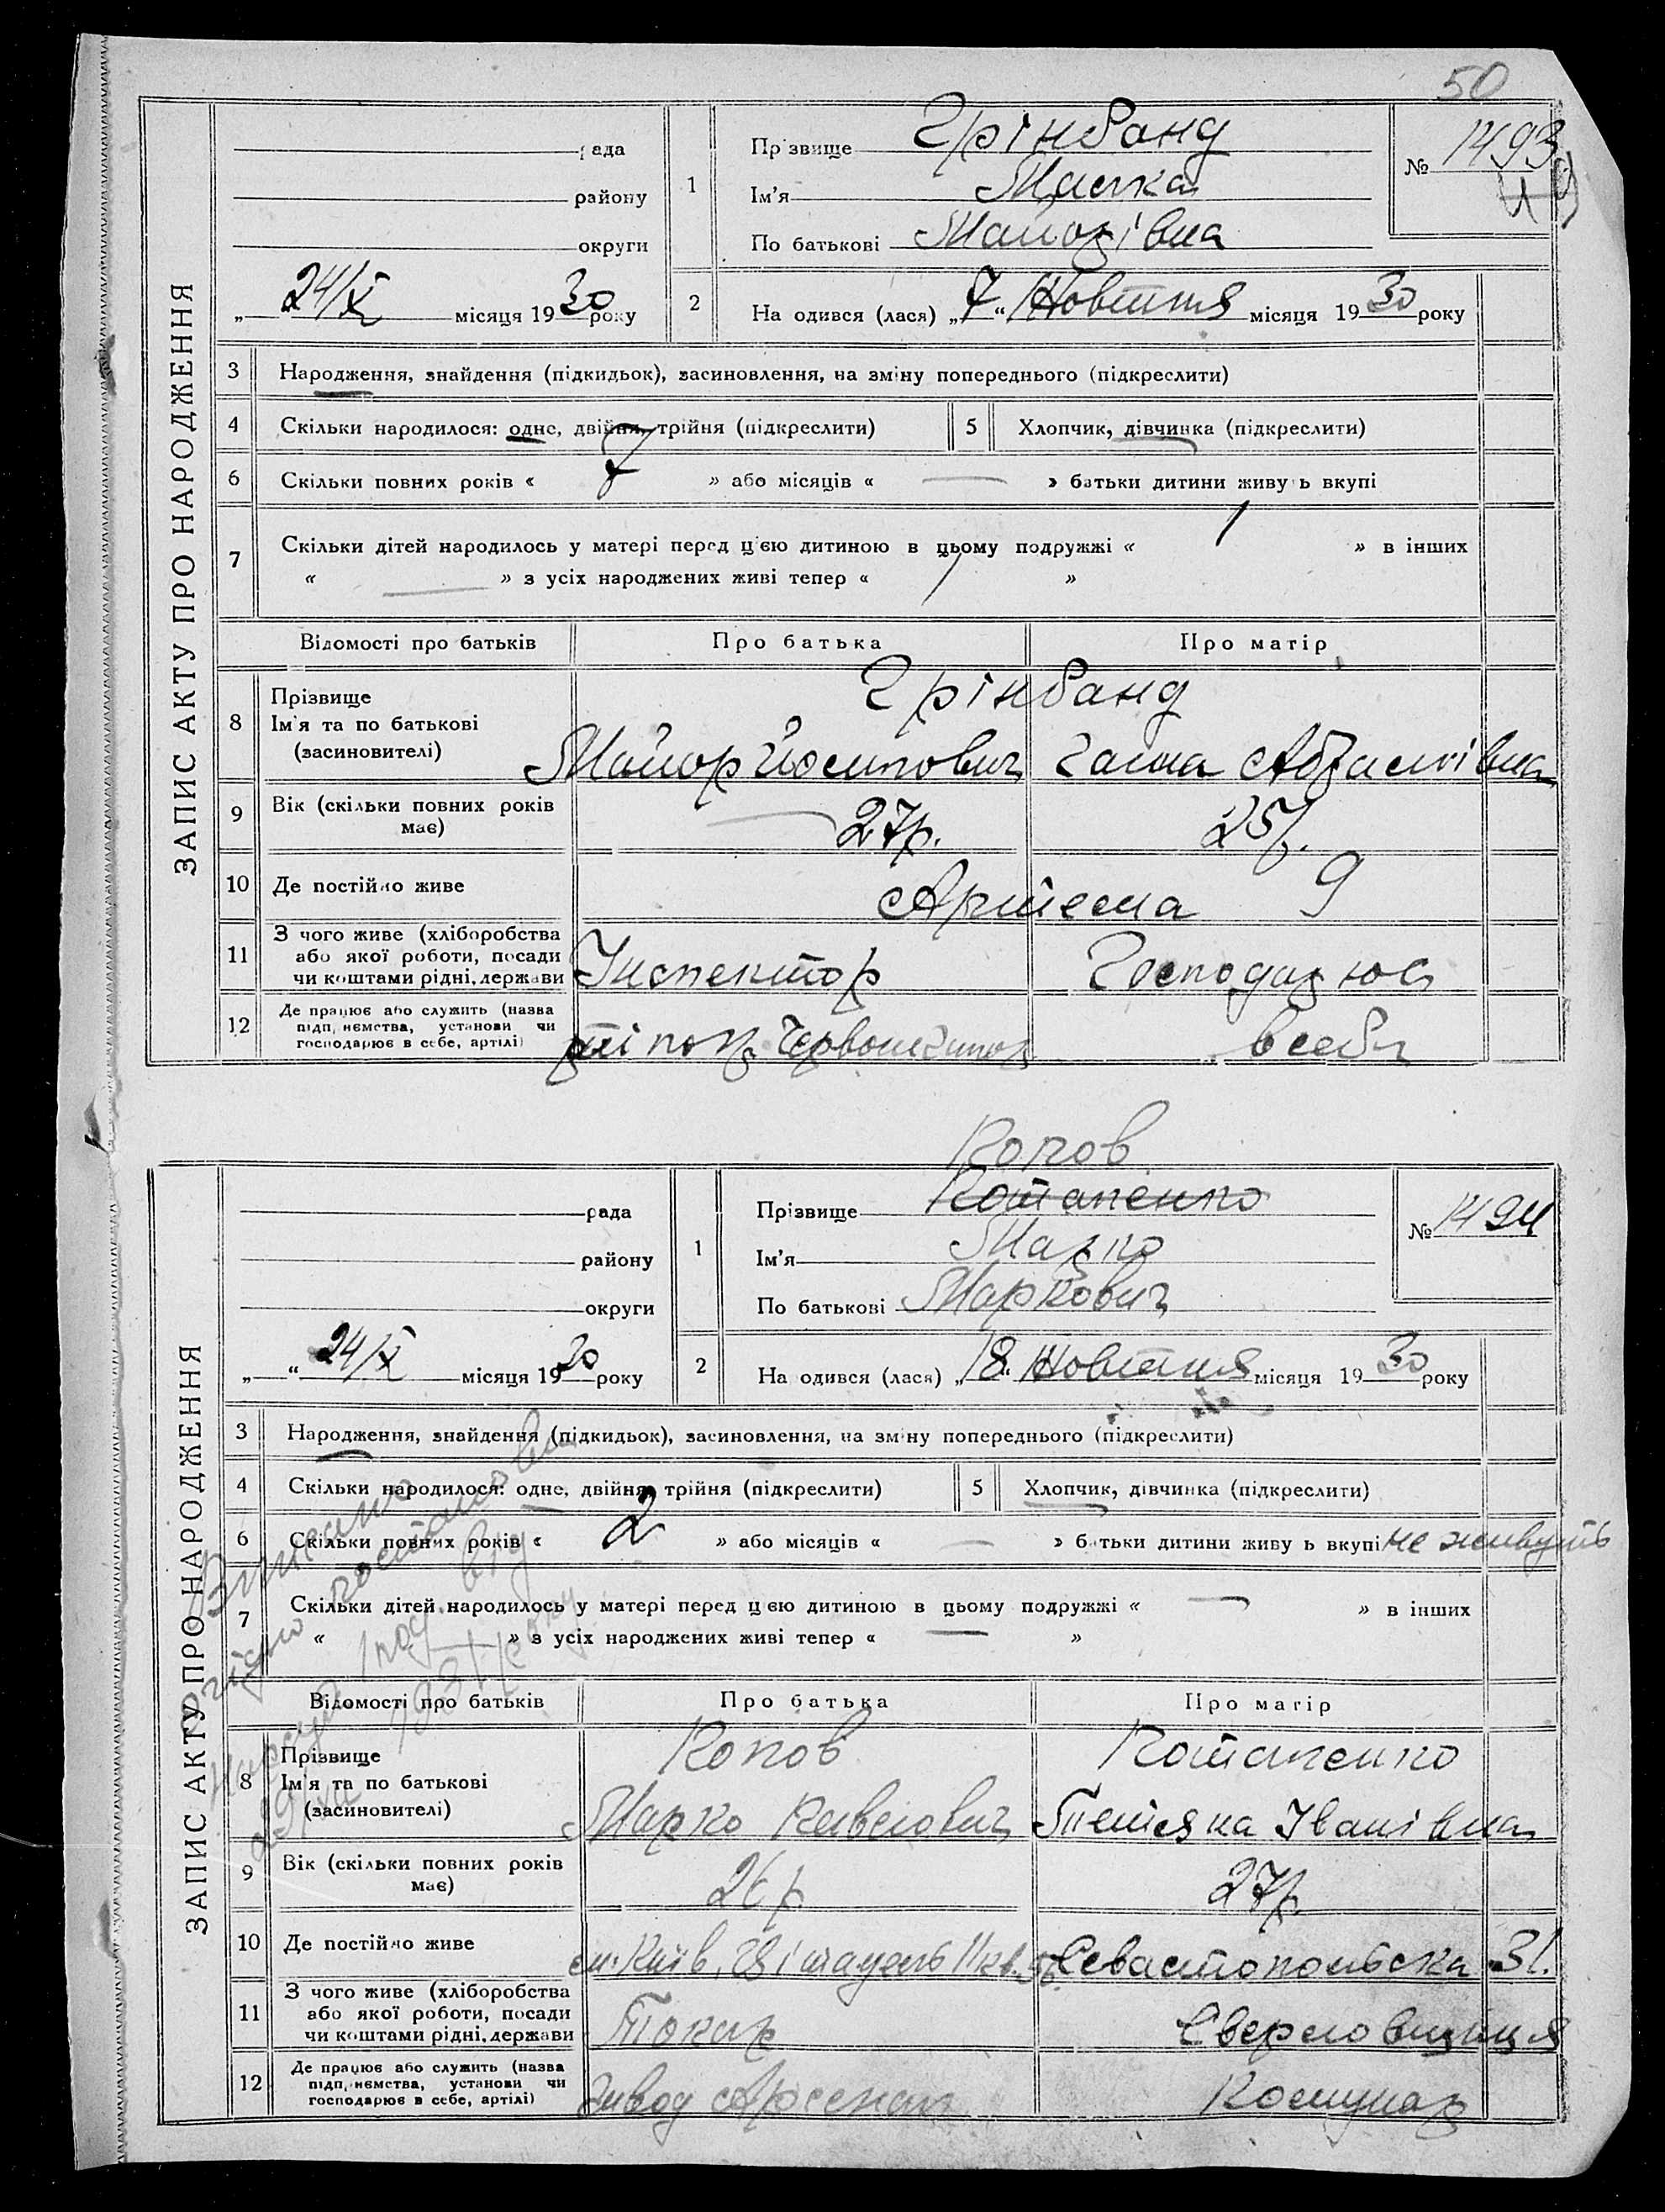 50
ЗАПИС АКТУ ПРО НАРОДЖЕННЯ
рада
району
округи
„ 24/X місяця 1930 року
1
Прізвище Грінбанд
Ім'я
По батькові Майорівна
№ 1493
2
На одився (лася) „7“ Жовтня місяця 1930 року
3 Народження, знайдення (підкидьок), засиновлення, на зміну попереднього (підкреслити)
4 Скільки народилося: одне, двійня, трійня (підкреслити)
5 Хлопчик, дівчинка (підкреслити)
6 Скільки повних років « 7 » або місяців « — » батьки дитини живуть вкупі
7 Скільки дітей народилось у матері перед цією дитиною в цьому подружжі « 1 » в інших
« — » з усіх народжених живі тепер « 1 »
Відомості про батьків Про батька Про матір
8 Прізвище
Ім'я та по батькові
(засиновителі)
Грінбанд
Майор Йосипович Ганна
9 Вік (скільки повних років має) 27р. 25р.
10 Де постійно живе Артема 9
11 З чого живе (хліборобства
або якої роботи, посади
чи коштами рідні, держави
Інспектор Господарює
12 Де працює або служить (назва
підприємства, установи чи
господарює в себе, артілі)
в себе
ЗАПИС АКТУ ПРО НАРОДЖЕННЯ
рада
району
округи
„—“ 24/X місяця 1930 року
1
Попов
Прізвище Потапенко
Ім'я Марко
По батькові Маркович
№ 1494
2
На одився (лася) „18. Жовтня місяця 1930 року
3 Народження, знайдення (підкидьок), засиновлення, на зміну попереднього (підкреслити)
4 Скільки народилося: одне, двійня, трійня (підкреслити)
5 Хлопчик, дівчинка (підкреслити)
6 Скільки повних років « 2 » або місяців « — » батьки дитини живуть вкупі не живуть
7 Скільки дітей народилось у матері перед цією дитиною в цьому подружжі « — » в інших
« — » з усіх народжених живі тепер « — »
Відомості про батьків Про батька Про матір
8 Прізвище
Ім'я та по батькові
(засиновителі)
Попов Потапенко
Марко Тетяна Іванівна
9 Вік (скільки повних років має) 26р. 27р.
10 Де постійно живе
м. Київ, Севастопольська 31.
11 З чого живе (хліборобства
або якої роботи, посади
чи коштами рідні, держави
Токар Сверловщиця
12 Де працює або служить (назва
підприємства, установи чи
господарює в себе, артілі)
Завод Арсенал Комунар
згідно постанови
від